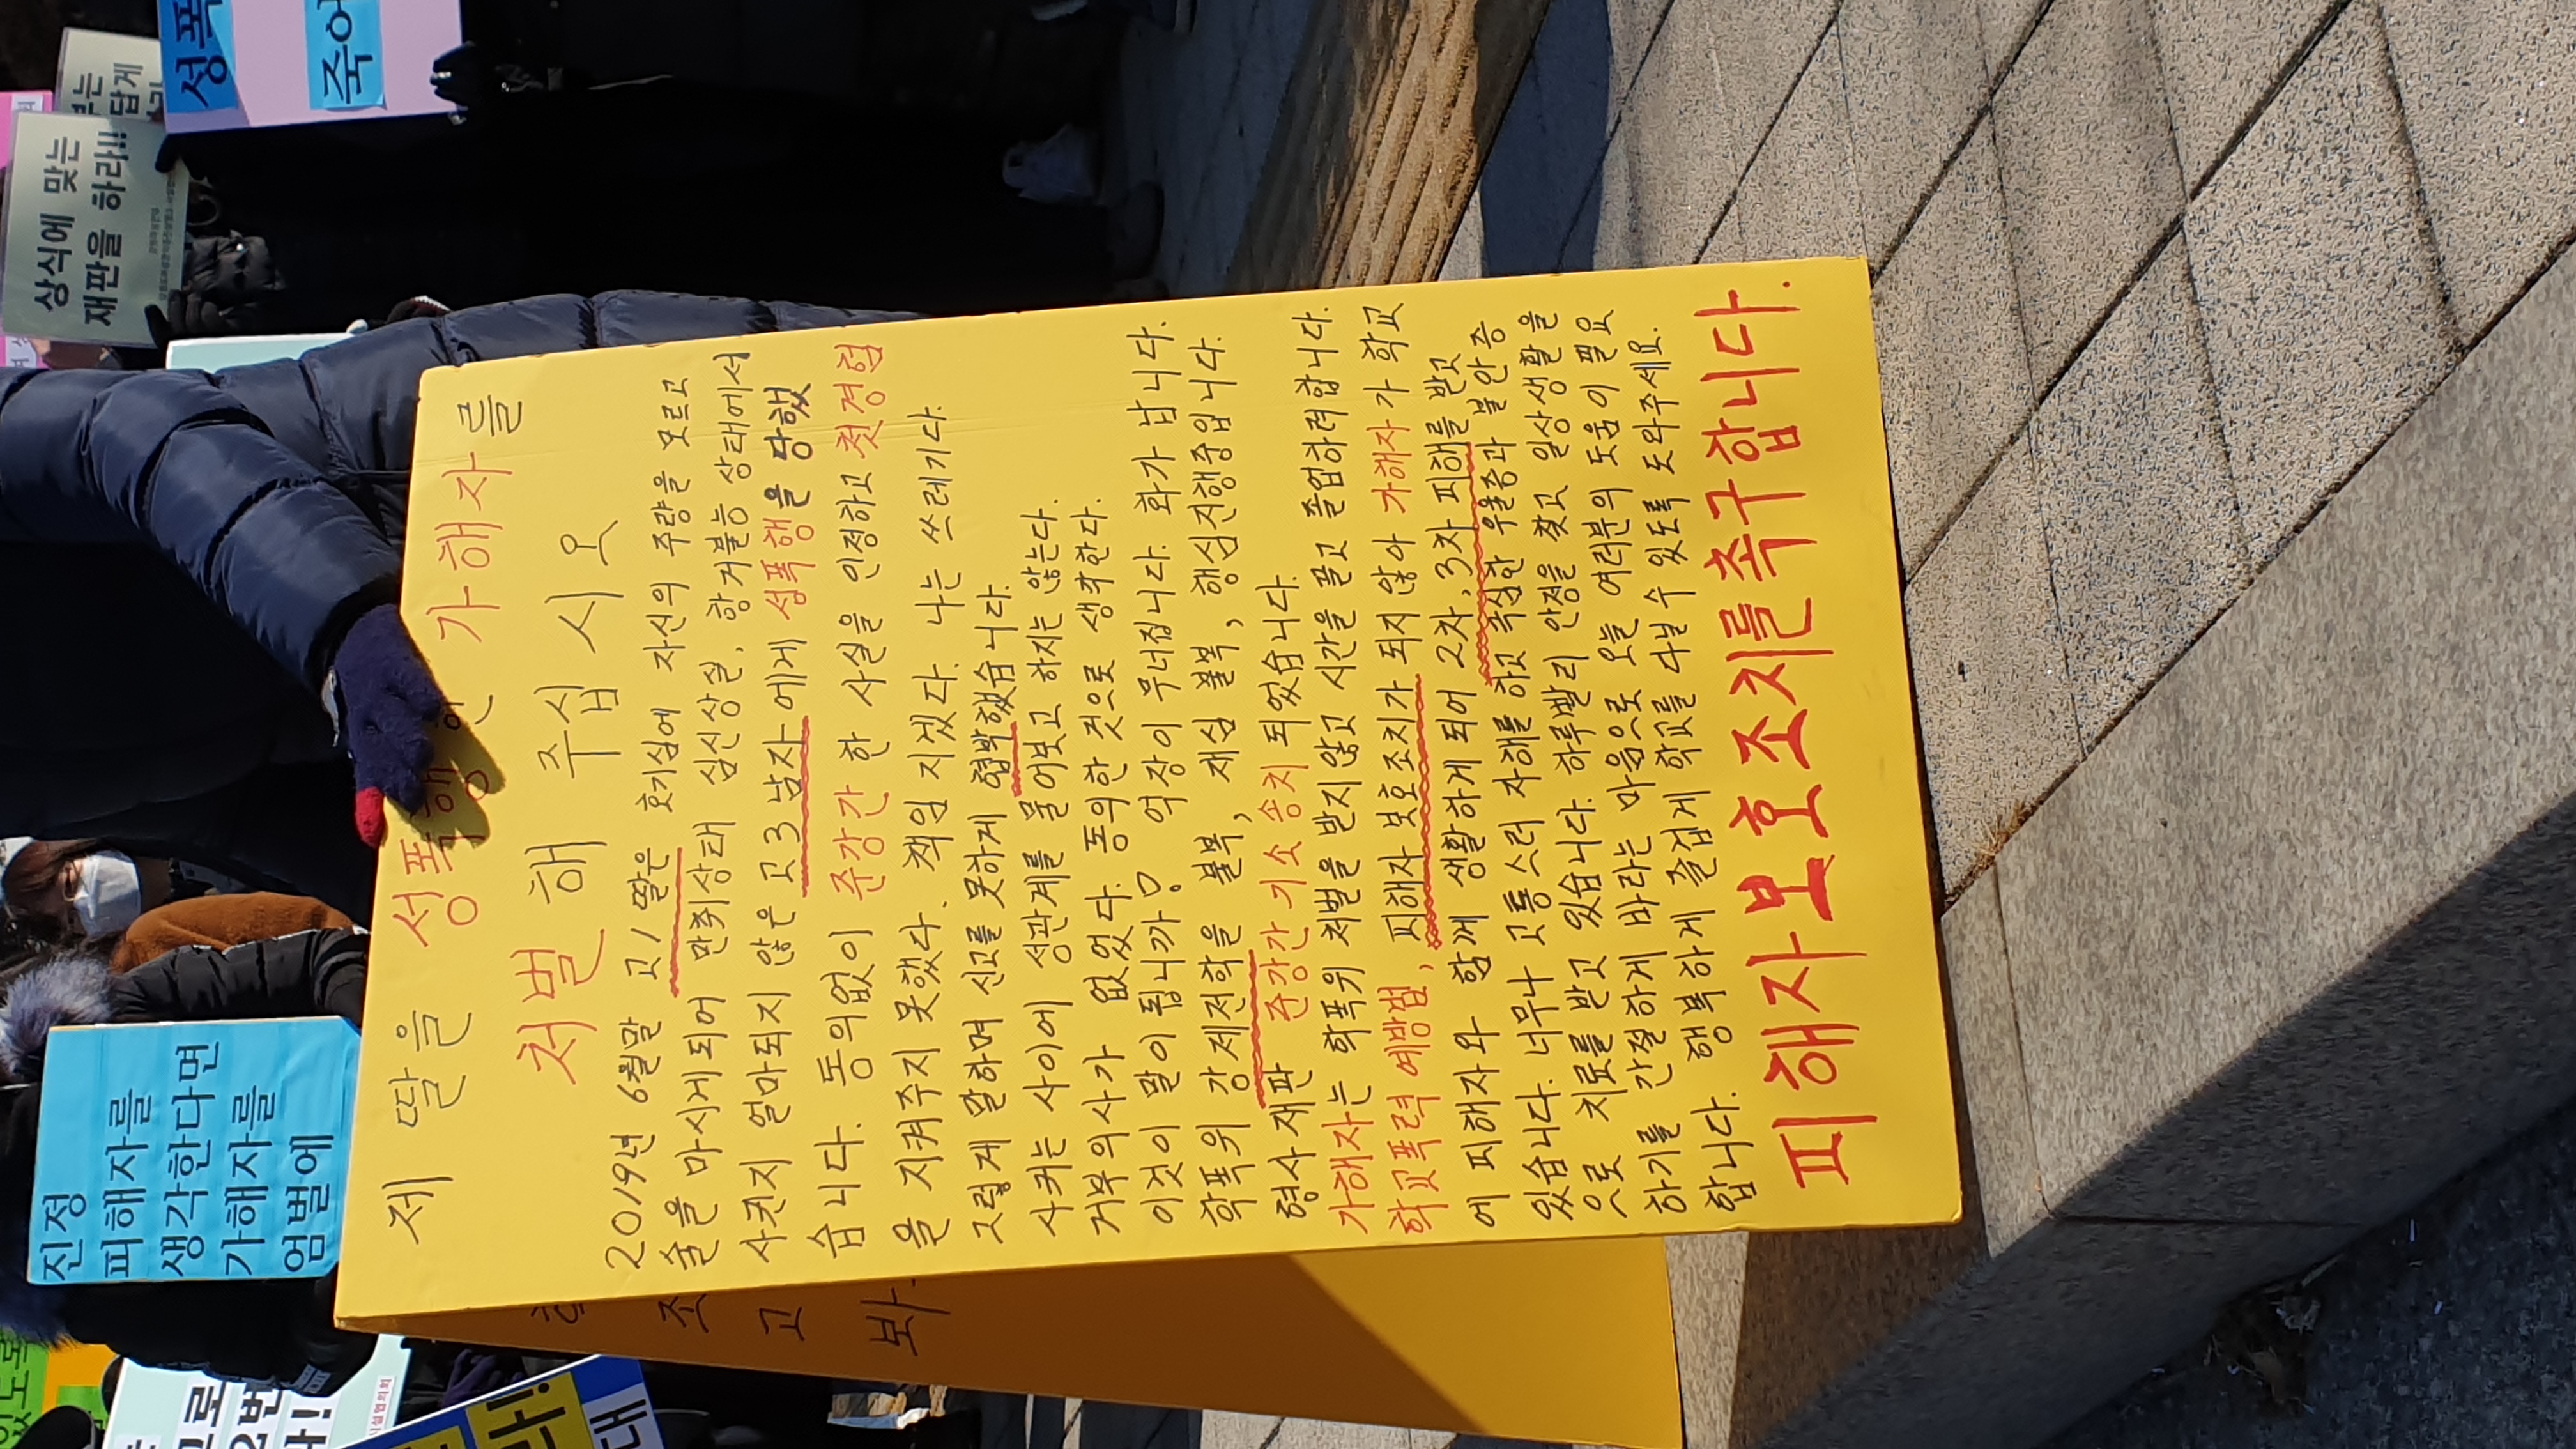 제 딸을 성폭행한 가해자를
처벌 해 주십시오
2019년 6월말 고1 딸은 호기심에 자신의 주량을 모르고
술을 마시게 되어 만취상태 심신상실, 항거불능 상태에서
사귄지 얼마되지 않은 고3 남자에게 성폭행을 당했
습니다. 동의없이 준강간 한 사실을 인정하고 첫경험
을 지켜주지 못했다. 책임 지겠다. 나는 쓰레기다.
그렇게 말하며 신고를 못하게 협박했습니다.
사귀는 사이에 성관계를 물어보고 하지는 않는다.
거부의사가 없었다. 동의한 것으로 생각한다.
이것이 말이 됩니까? 억장이 무너집니다. 화가 납니다.
학폭위 강제전학을 불복, 재심 불복, 행심진행중입니다.
형사재판 준강간 기소송치 되었습니다.
가해자는 학폭위 처벌을 받지않고 시간을 끌고 졸업하려합니다.
학교폭력 예방법, 피해자 보호조치가 되지 않아 가해자가 학교
에 피해자와 함께 생활하게 되어 2차, 3차 피해를 받고
있습니다. 너무나 고통스러 자해를 하고 극심한 우울증과 불안증
으로 치료를 받고 있습니다. 하루빨리 안정을 찾고 일상생활을
하기를 간절하게 바라는 마음으로 오늘 여러분의 도움이 필요
합니다. 행복하게 즐겁게 학교를 다닐 수 있도록 도와주세요.
피해자보호조치를촉구합니다.
진정
피해자를
생각한다면
가해자를
엄벌에
상식에 맞는
재판을 하라!!
는
답게
성폭
죽어
조
고
보
로
대